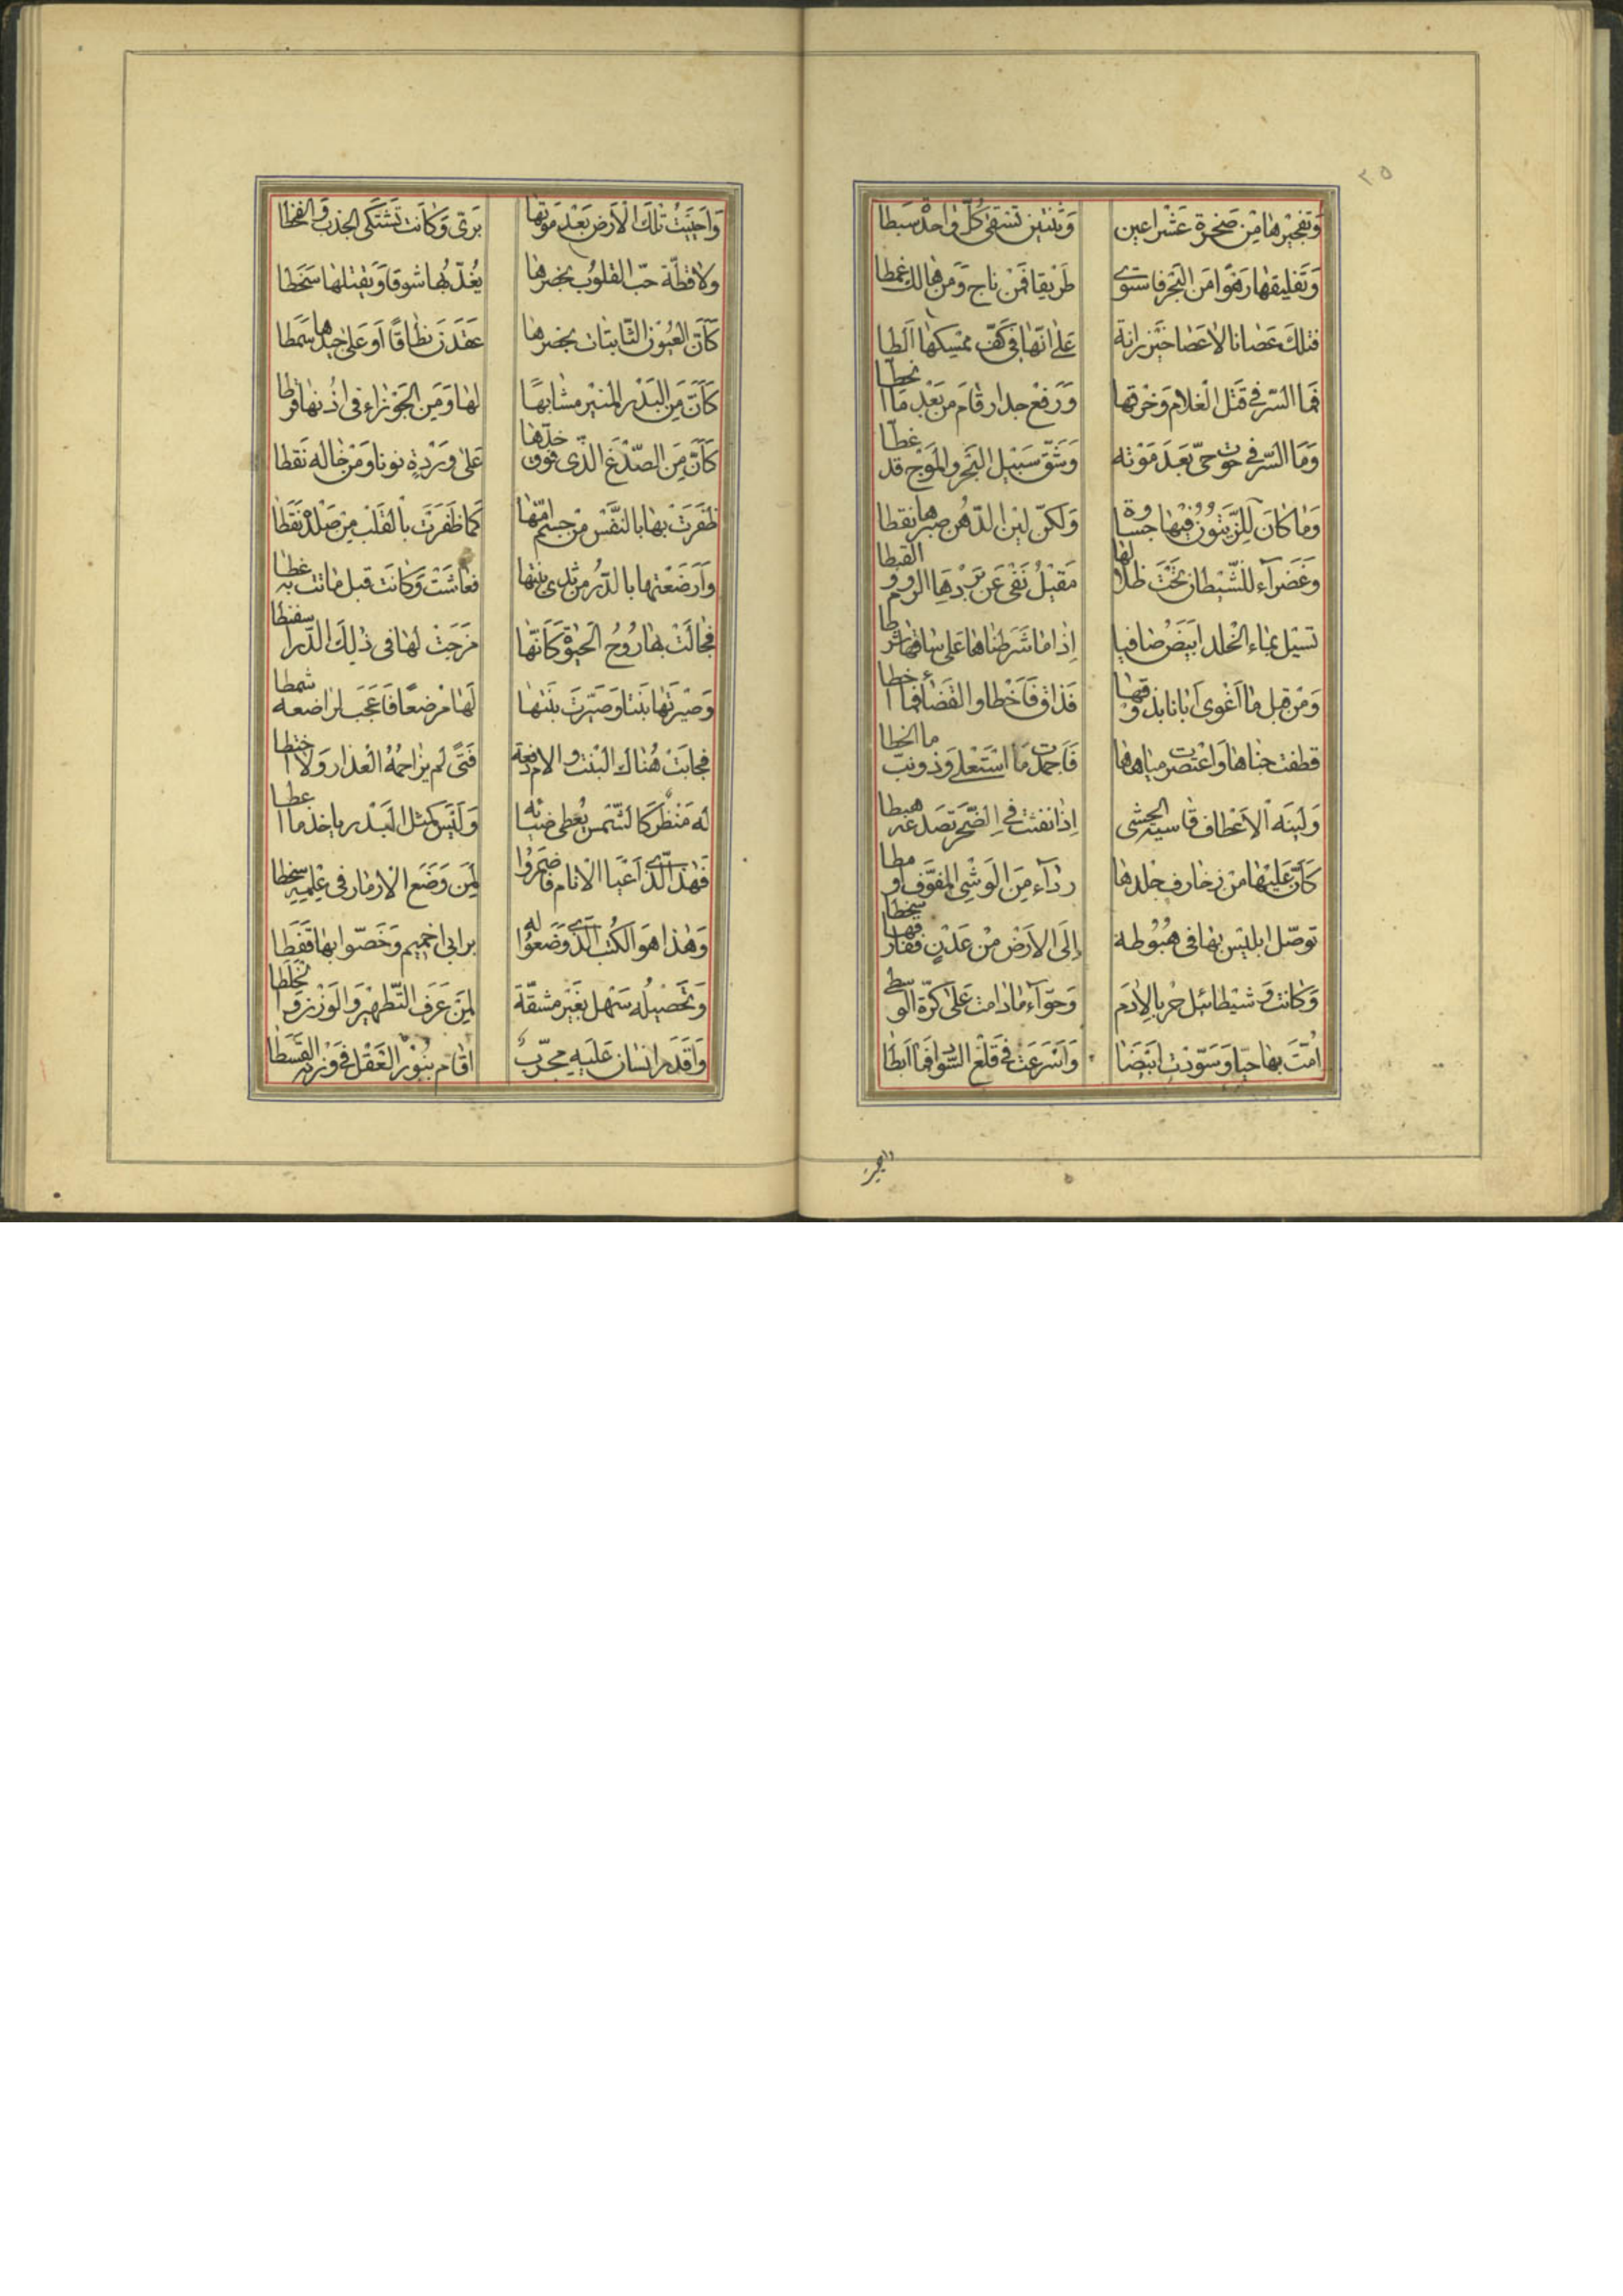 ٢٥
وَتفجيرها مِنْ صَخرة عَشْر اعين وَثنتين تسقى كلّ واحدْ سَبطا
وَتَفليقها رَهْوًا مَن البَحْر فاستوى طَريقا فَمَنْ ناج وَمن هَالك غمطا
فتلك عَصانا لا عَصا خَيزرانة عَلى انّها فى كَفّ ممْسكها الطا
فَما السّر فى قتل الغلام وَخرقها وَرَفع جدار قام من بَعْد ما انحطا
وَمَا السّر فى حوت حىّ بَعدَ مَوْته وَشَق سَبيل البَحْر والموَج قد غطّا
وَما كانَ للزيتون فيها جساوة وَلكنّ لين الدّهن صيرها نقطا
وغَضرآء للشّيطان تحْتَ ظلالها مَقيْلُ نَفى عَن بَرْدِهَا الروم والقبطا
تسيْل بماء الخلد ابيَض صافيا اِذا ما شَرطناها عَلى ساقها شرطا
وَمنْ قبل ما اَغْوى اَبانا بذوقها فَذاق فَاَخْطا والقضا فما اخطا
قطفت جناها وَاعْتصرت مياهها فَاجمدت مَا اسْتَعْلى وَذوبت ما انحطا
وَلينَه الاَعْطاف قاسيه الحشى اِذا نفثت فى الصَّخر تصَدعه هبطا
كَاَنّ عَليْها من زخارف جلدها ردآء مِنَ الوَشى المفوّف او مطا
توصّل ابليْس بها فى هبُوْطه اِلَى الاَرْض منْ عَدْنٍ ففارقها سخطا
وَكانت وَشيْطائيل حْربا لادَم وَحوّآء مادامت عَلى كرّة الوسطى
اُمتّ بها حيّا وَسَوّدْت ابيَضا وَاَسْرَعَت فى قَلْع السّواد فما اَبطا
واحيت
وَاَحيَيْتُ تلكَ الاَرض بَعْد مَوتها بَريّ وَكاَنت تشتكى الجذب والقحطا
ولاقطة حبّ القلوُب بخصرها يعُدّ بها شوقا وَيقتلها سَخطا
كَاَنّ العيُون الثّابتات بخصرها عَقدَن نطاقًا اَو عَلى جيدها سَمَطا
كَاَنّ مِنَ البَدْر المنيْر مشابهًا لها وَمِن الجَوْزاء فى اذُنها قرطا
كَاَنّ مِنَ الصّدْغ الذّى فوْق خدّها عَلى وَرْدةٍ نونا وَمنْ خاله نَقطا
ظَفَرَتْ بها بالنّفْس منْ جسم امّها كَما ظفَرَتْ بالقلب مِنْ صَلدْ نَقَطا
وَاَرضَعْتها بالدّر من ثدى بنتها فعاشَتْ وَكانَت قبل ماتت به غطا
فجالَتْ بها رُوحُ الحيوْة كَاَنّها مَزجَتْ لها فى ذلِكَ الدّر اسفنطا
وَصيّرتها بَنتا وَصَيّرتَ بنتها لَها مرْضعًا فَاَعجَب لراضعه شمطا
فجابَتْ هُناك البْنت والام دفعة فَتىً لم يزاحمُهُ الْعذار وَلا اختطا
لهُ مَنْظر كَالشّمس يُعطى ضيائه وَلَيْس كَمثل البَدْر يا خذ ما اعطا
فَهذا الّذى اَعْيا الانام فاضمرُوا لمِن وَضَع الارمار فى عِلميه سخطا
وَهذا هوَ الكُنْب الّذى وَضعوُا له برابى اخميم وَخَصّوا بها قفَطا
وَتحْصيْلُه سَهْل بغَيْر مشقّة لمِنَ عَرَفَ التّطهير وَالوَزْن والخَلطا
وَاقدَم انسان عَليه مجرّبٌ اقام بنُوْر العَقل فى وَزنه القسَطا